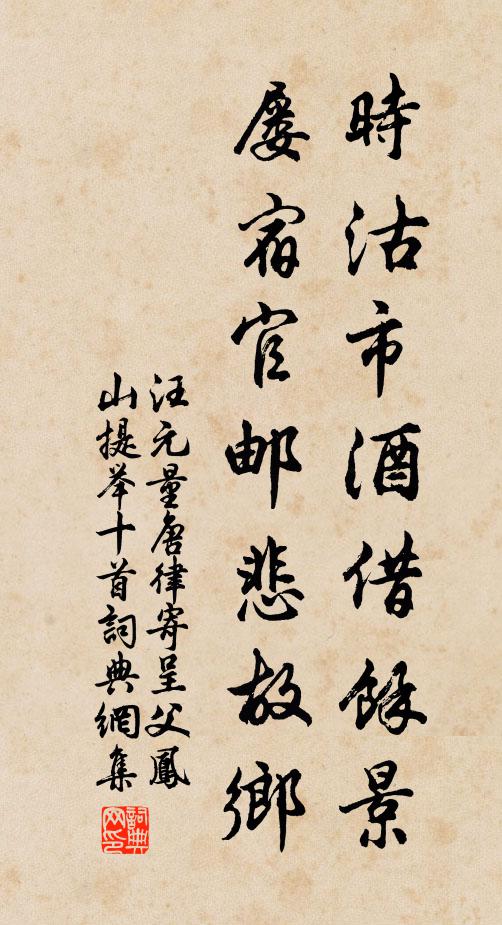 時沽市酒借餘景
屢宿官邮悲故鄉
汪元量唐律寄呈父鳳
山提举十首詞典網集
詞典网印